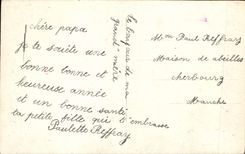 chère papa
je te souète une
bonne bonne et
heureuse année
et un bonne santé
ta petite fille qui t'embrasse
Paulette Reffray
le bonjour de ma
grand'mère
Mr Paul Reffray
Maison de abeilles
cherbourg
Manche